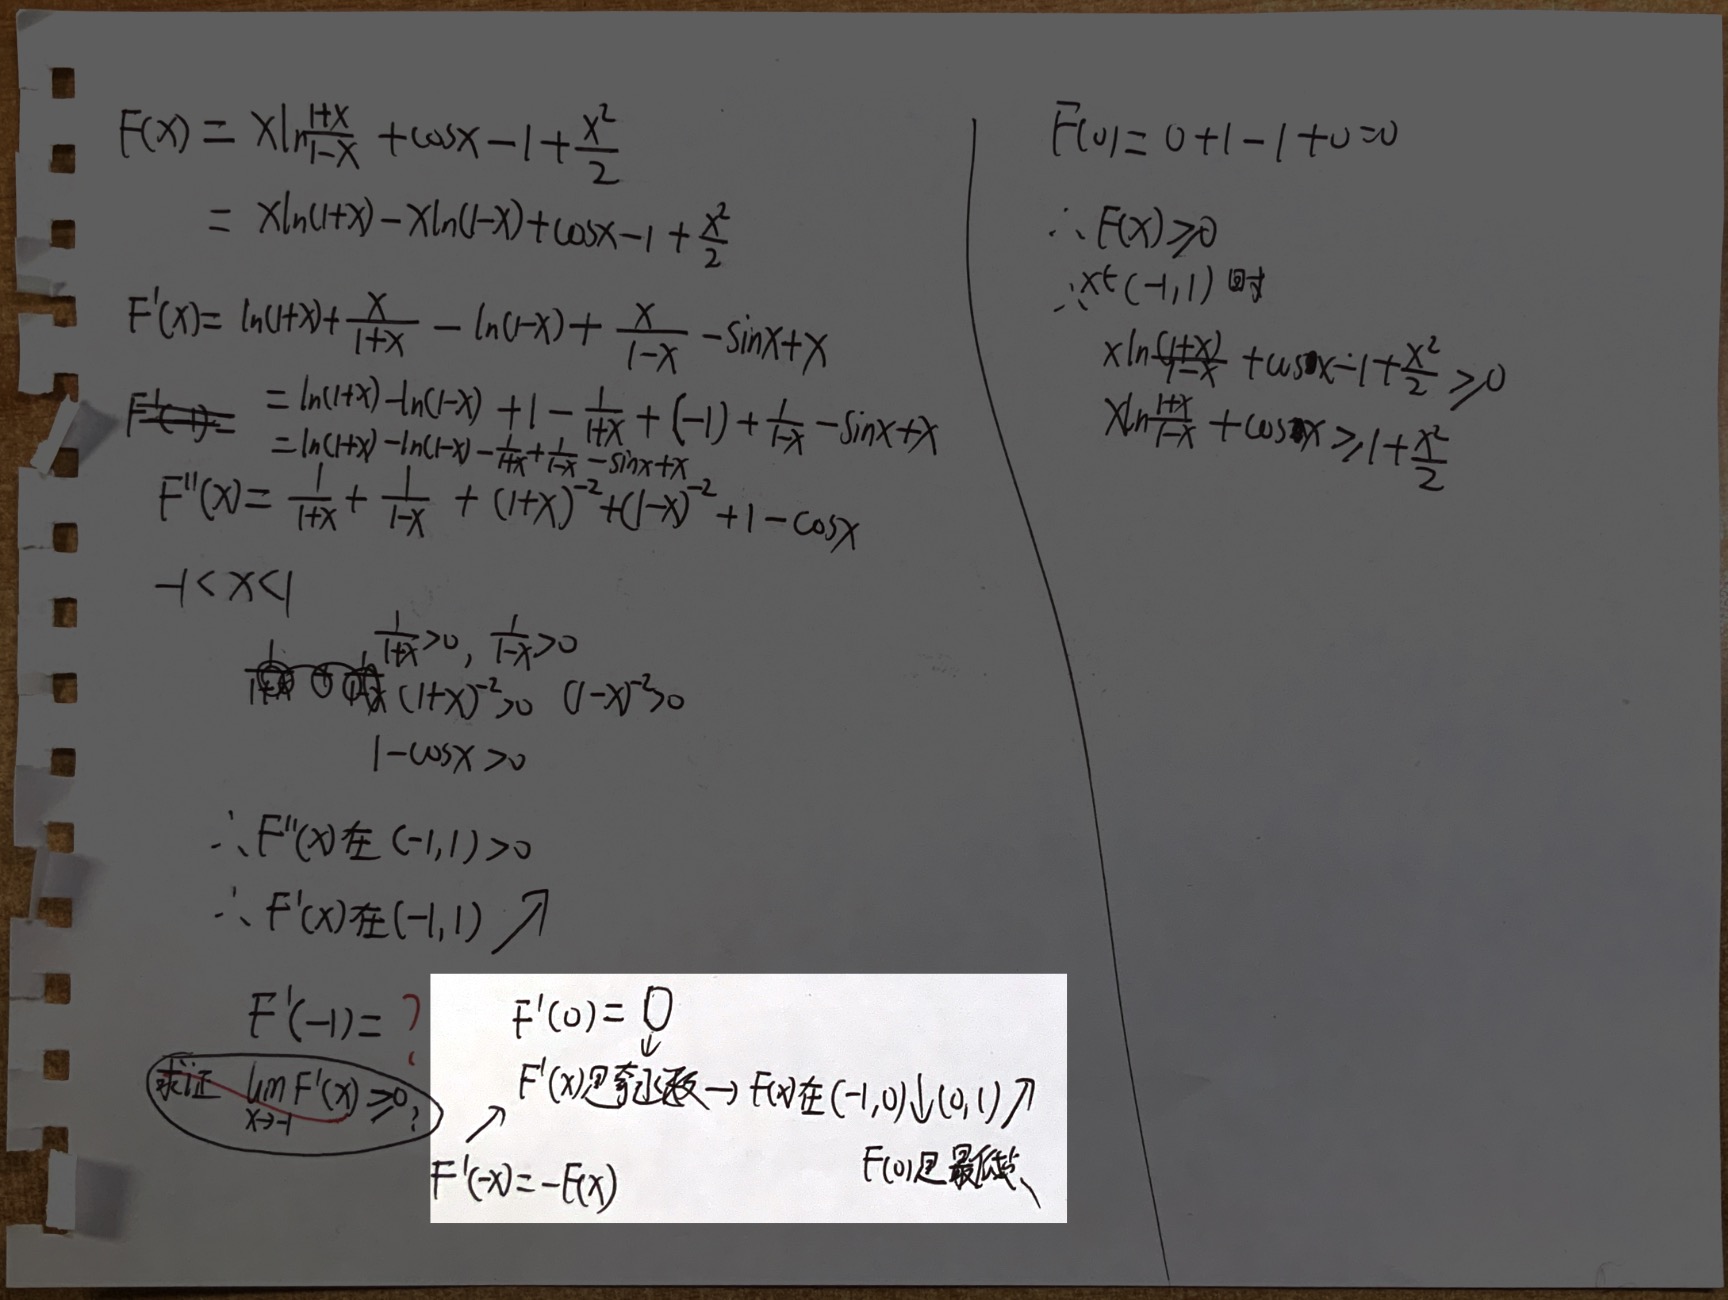 F(x) = xln\frac{1+x}{1-x} + cosx - 1 + \frac{x^2}{2}
= xln(1+x) - xln(1-x) + cosx - 1 + \frac{x^2}{2}
F'(x) = ln(1+x) + \frac{x}{1+x} - ln(1-x) + \frac{x}{1-x} - sinx + x
= ln(1+x) - ln(1-x) + 1 - \frac{1}{1+x} + (-1) + \frac{1}{1-x} - sinx + x
= ln(1+x) - ln(1-x) - \frac{1}{1+x} + \frac{1}{1-x} - sinx + x
F''(x) = \frac{1}{1+x} + \frac{1}{1-x} + (1+x)^{-2} + (1-x)^{-2} + 1 - cosx
-1 < x < 1
\frac{1}{1+x} > 0, \frac{1}{1-x} > 0
(1+x)^{-2} > 0 (1-x)^{-2} > 0
1 - cosx > 0
∴ F''(x)在(-1,1) > 0
∴ F'(x)在(-1,1) ↗
F'(-1) = ?
求证 \lim_{x→-1} F'(x) ≥ 0 ?
F'(0) = 0
↓
F'(x)是奇函数 → F(x)在(-1,0)↓(0,1)↗
↗
F(0)是最低点
F'(-x) = -F(x)
F(0) = 0 + 1 - 1 + 0 = 0
∴ F(x) ≥ 0
∴ x∈(-1,1)时
xln\frac{(1+x)}{1-x} + cosx - 1 + \frac{x^2}{2} ≥ 0
xln\frac{1+x}{1-x} + cosx ≥ 1 + \frac{x^2}{2}